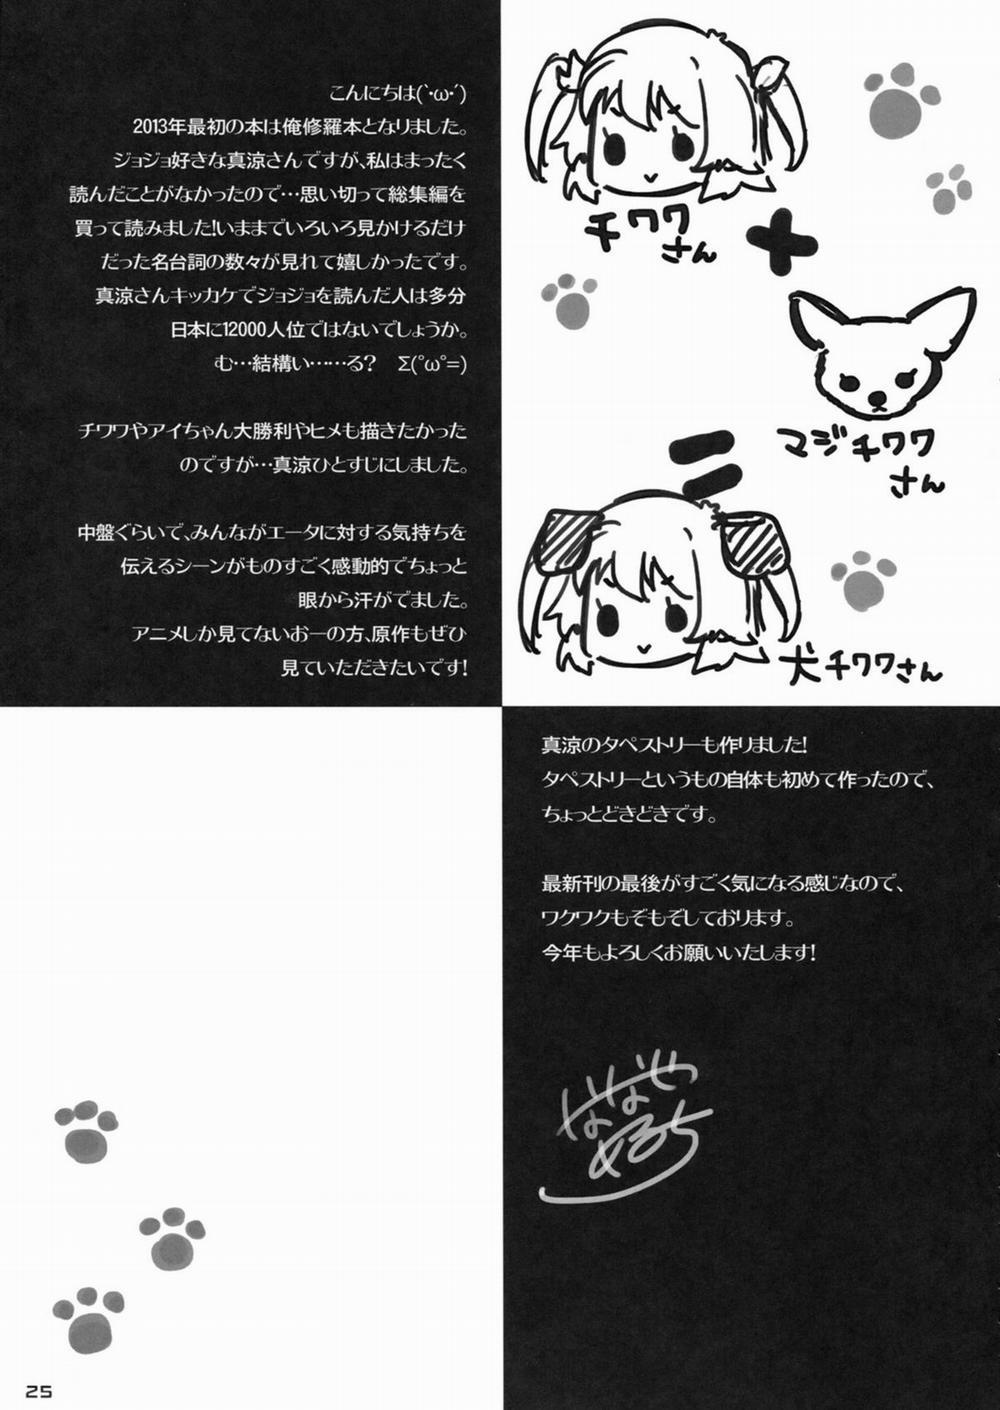 こんにちは(`･ω･´)
2013年最初の本は俺修羅本となりました。
ジョジョ好きな真涼さんですが、私はまったく
読んだことがなかったので…思い切って総集編を
買って読みました!いままでいろいろ見かけるだけ
だった名台詞の数々が見れて嬉しかったです。
真涼さんキッカケでジョジョを読んだ人は多分
日本に12000人位ではないでしょうか。
む…結構い……る?　Σ(ﾟωﾟ=)
チワワやアイちゃん大勝利やヒメも描きたかった
のですが…真涼ひとすじにしました。
中盤ぐらいで、みんながエータに対する気持ちを
伝えるシーンがものすごく感動的でちょっと
眼から汗がでました。
アニメしか見てないおーの方、原作もぜひ
見ていただきたいです!
チワワ
さん
+
マジチワワ
さん
=
犬チワワさん
真涼のタペストリーも作りました!
タペストリーというもの自体も初めて作ったので、
ちょっとどきどきです。
最新刊の最後がすごく気になる感じなので、
ワクワクもぞもぞしております。
今年もよろしくお願いいたします!
ななせ
めるち
25